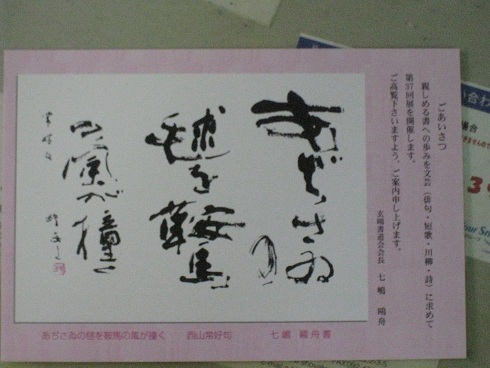 ごあいさつ
親しめる書への歩みを文芸(俳句・短歌・川柳・詩)に求めて
第37回展を開催します。
ご高覧下さいますよう、ご案内申し上げます。
玄鳴書道会会長 七嶋 鷗舟
あぢさゐ
の
毬を鞍馬
の風が撞く
あぢさゐの毬を鞍馬の風が撞く 西山常好句 七嶋 鷗舟書